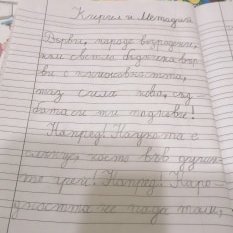 Кирил и Методий
Върви, народе възродени,
към светла бъднина вър
ви с книжовността,
таз сила нова, съд
бините ти поднови!
Напред! Науката е
слънце, което във души
те грей! Напред! Наро
дността не пада там,